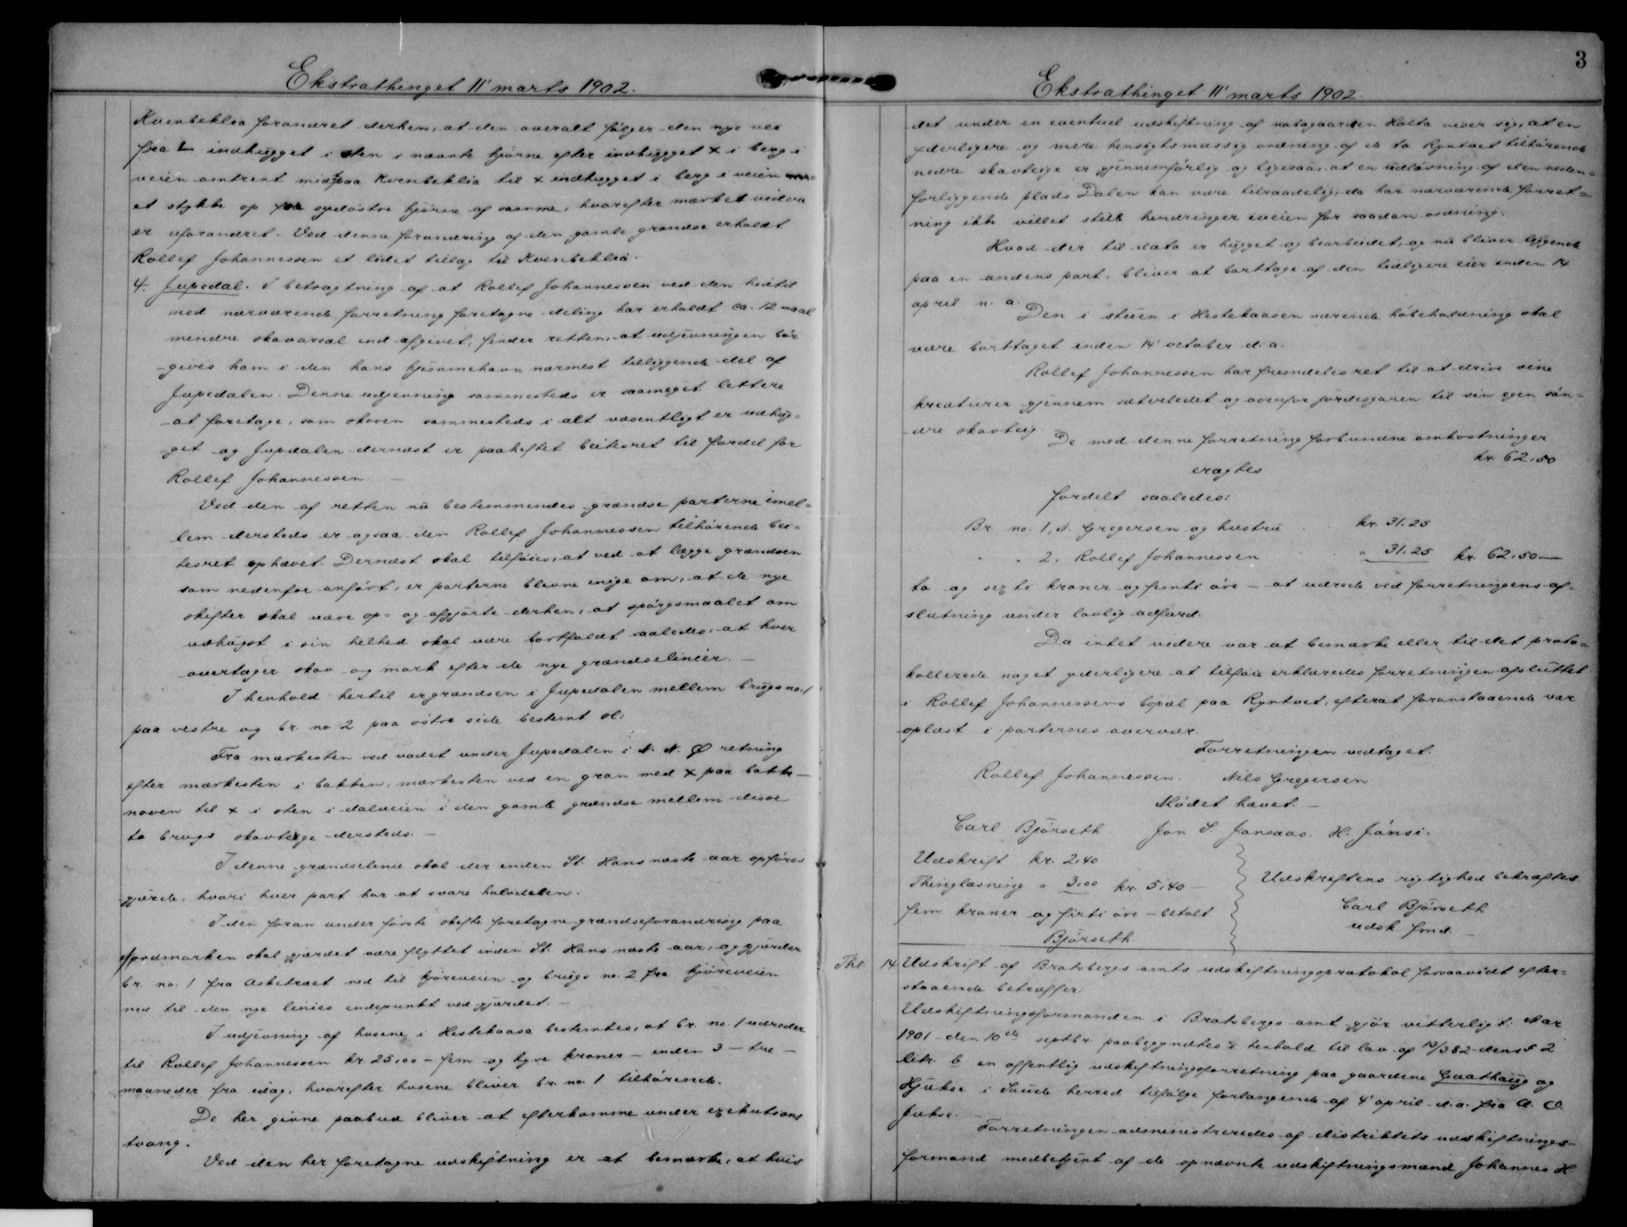 Ekstrathinget 11' marts 1902.
Kvenbeklia forandret derhen, at den overalt følger den nye vei
fra L indhugget i sten i nævnte hjørne efter indhugget X i berg i
veien omtrent midtpaa Kvenbeklia til X indhugget i berg i veien
et stykke op for sydøstre hjørne af samme, hvorefter mærket videre
er uforandret. Ved denne forandring af den gamle grændse erholdt
Rollef Johannessen et lidet tillæg til Kvenbeklia.
4. Jupedal. I betragtning af at Rollef Johannessen ved den hidtil
med nærværende forretning foretagne deling har erholdt ca. 12 maal
mindre skovareal end afgivet, finder retten, at udjevningen bør
gives ham i den hans hjemmehavn nærmest tilliggende del af
Jupedalen. Denne udjevning sammesteds er saameget lettere
at foretage, som skoven sammesteds i alt væsentligt er udhug-
get og Jupdalen dernæst er paaheftet beitesret til fordel for
Rollef Johannessen.
Ved den af retten nu bestemmendes grændse parterne imel-
lem dersteds er ogsaa den Rollef Johannessen tilhørende bei-
tesret ophævet. Dernæst skal tilføies, at ved at lægge grændsen
som nedenfor anført, er parterne blevne enige om, at de nye
skifter skal være op- og afgjorte derhen, at spørgsmaalet om
udhugst i sin helhed skal være bortfaldt saaledes, at hver
overtager skov og mark efter de nye grændselinier. —
I henhold hertil er grændsen i Jupedalen mellem brugs no. 1
paa vestre og br. no 2 paa østre side bestemt sl:
Fra merkesten ved vadet under Jupedalen i N. N. Ø retning
efter mærkesten i bakken, mærkesten ved en gran med X paa bakke-
noven til X i sten i dalveien i den gamle grændse mellem disse
to brugs skovteige dersteds. —
I denne grændselinie skal der inden St. Hans næste aar opføres
gjærde, hvori hver part har at svare halvdelen.
I den foran under første skifte foretagne grændseforandring paa
Jordsmarken skal gjærdet være flyttet inden St. Hans næste aar, og gjærder
br. no. 1 fra Asketræet ned til kjøreveien og brugs no. 2 fra kjøreveien
ned til den nye linies endepunkt ved gjærdet. —
I udjevning af husene i Hestekaasa bestemtes, at br. no. 1 udreder
til Rollef Johannessen kr 25,00 - fem og tyve kroner - inden 3 - tre -
maaneder fra idag, hvorefter husene bliver br. no. 1 tilhørende.
De her givne paabud bliver at efterkomme under exekutions
tvang.
Ved den her foretagne udskiftning er at bemærke, at hvis
3
Ekstrathinget 11' marts 1902
det under en eventuel udskiftning af nabogaarden Holta viser sig, at en
yderligere og mere hensigtsmæssig ordning af de to Ryntvet tilhørende
nedre skovteige er gjennemførlig og ligesaa, at en udløsning af den neden-
forliggende plads Dalen kan være tilraadelig, da har nærværende forret-
ning ikke villet stille hindringer iveien for saadan ordning.
Hvad der til dato er hugget og bearbeidet, og nu bliver liggende
paa en andens part, bliver at borttage af den tidligere eier inden 14
april n. a.
Den i stuen i Hestekaasen værende høbeholdning skal
være borttaget inden 14' october d. a.
Rollef Johannessen har fremdeles ret til at drive sine
kreaturer gjennem sæterledet og ovenfor jordesgaren til sin egen søn-
dre skovteig.
De med denne forretning forbundne omkostninger
eragtes kr. 62,50
fordelt saaledes:
Br. no. 1, N. Gregersen og hustru kr. 31,25
" " 2, Rollef Johannessen " 31,25 kr. 62,50 —
to og sexti kroner og femti øre - at udrede ved forretningens af-
slutning under lovlig adfærd.
Da intet videre var at bemærke eller til det proto-
kollerede noget yderligere at tilføie erklæredes forretningen afsluttet
i Rollef Johannessens bopæl paa Ryntvet, efterat foranstaaende var
oplæst i parternes overvær.
Forretningen vedtaget.
Rollef Johannessen. Nils Gregersen
Mødet hævet. —
Carl Bjørseth. Jon S. Jonsaas. H. Jónsi.
Udskrift kr. 2,40
Thinglæsning " 3,00 kr. 5,40 —
fem kroner og firti øre - betalt
Bjørseth
Udskriftens rigtighed bekræftes
Carl Bjørseth
udsk fmd. —
Thl. 14. Udskrift af Bratsbergs amts udskiftningsprotokol forsaavidt efter-
staaende betræffer:
Udskiftningsformanden i Bratsbergs amt gjør vitterligt: Aar
1901 den 10de septbr. paabegyndtes i henhold til lov af 13/3 82 dens § 2
litr. b en offentlig udskiftningsforretning paa gaardene Graathaug og
Hjukse i Saude herred tilfølge forlangende af 4' april d. a. fra A. O.
Jukse.
Forretningen administreredes af distriktets udskiftnings-
formand medbetjent af de opnævnte udskiftningsmænd Johannes H.